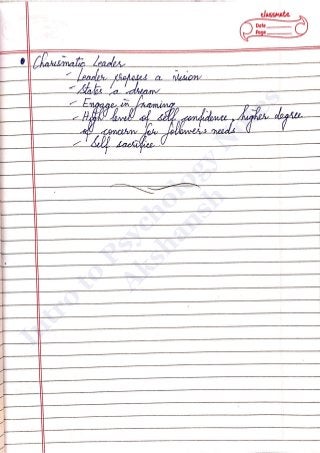 classmate
Date
Page
• Charismatic Leader
- Leader proposes a vision
- States a dream
- Engage in framing
- High level of self confidence, higher degree
of concern for followers needs
- Self sacrifice
Intro to Psychology Notes
Akshansh